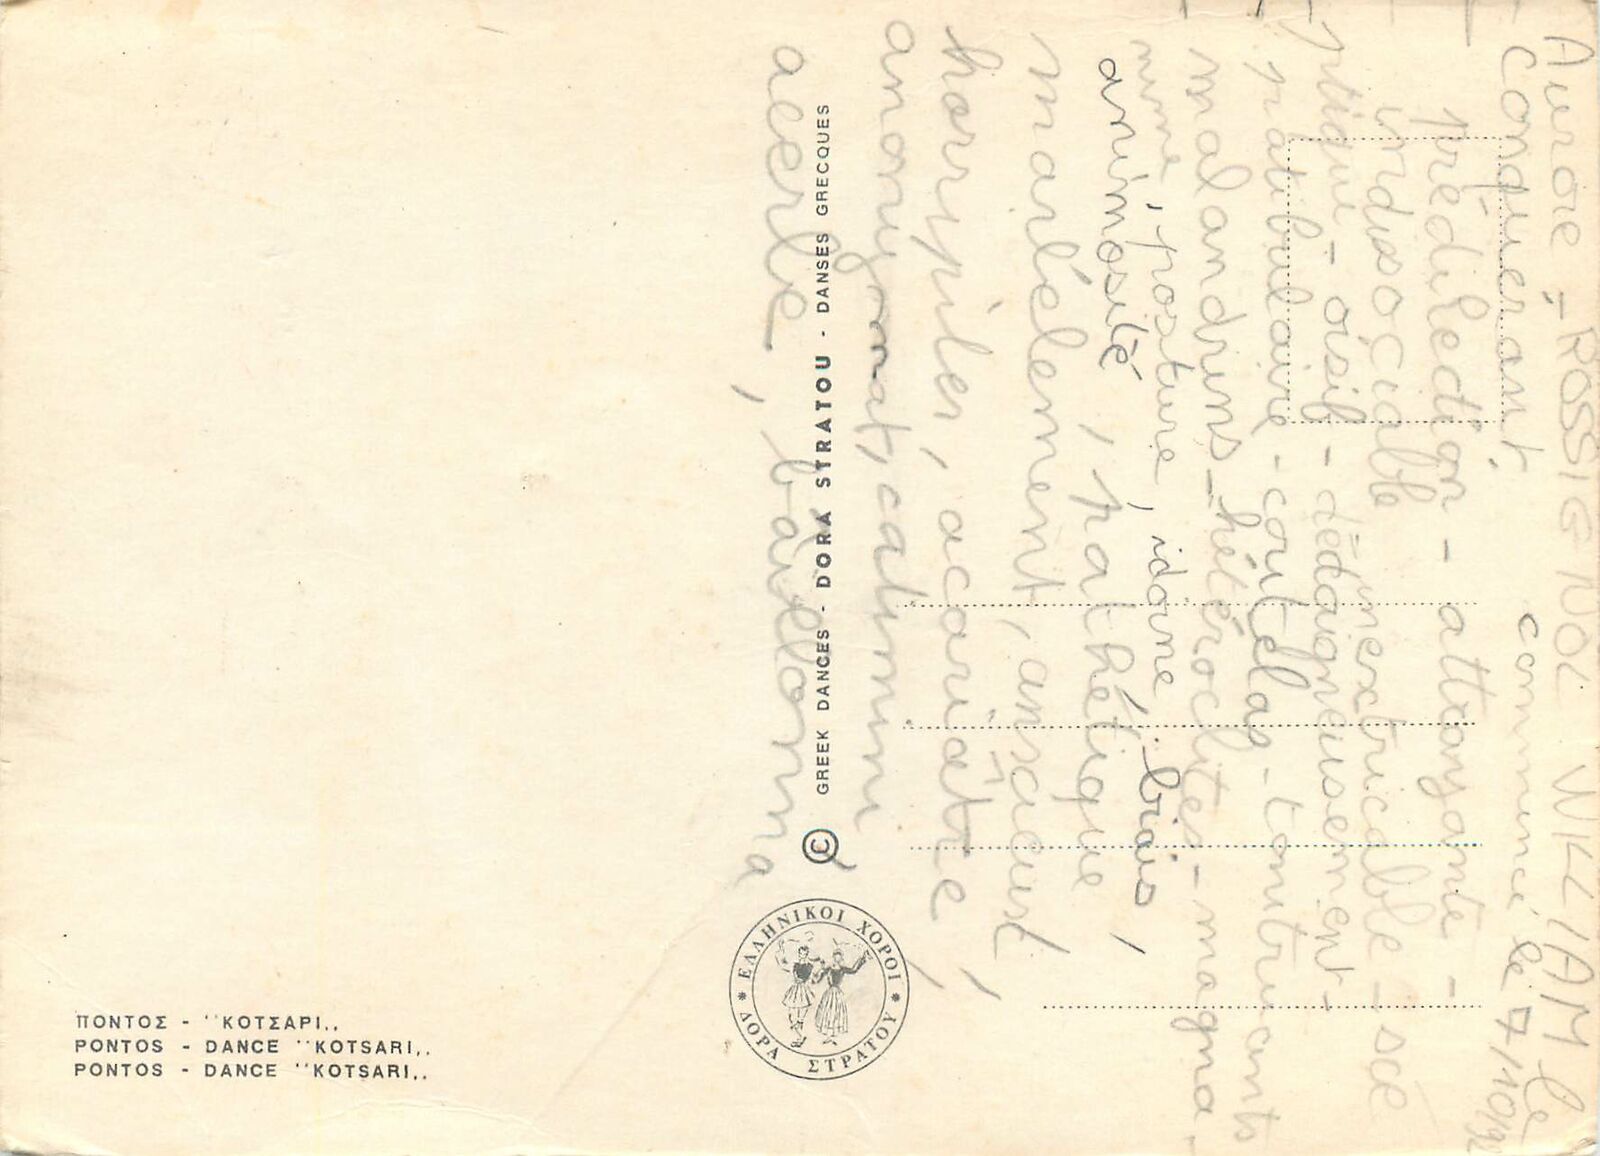 Aurore - ROSSIGNOL WILLIAM le
Conquérant. commencé le 7/10/92
prédilection - attrayante -
indissociable inextricable - sce
ptique - oisif - dédaigneusement -
patibulaire - coutelas - tonitruants
malandrins - hétéroclites - magna
nime, posture, idoine, biais,
animosité, pathétique,
martèlement,
horripiler, acariâtre,
anonymat, catimini,
acerbe,
GREEK DANCES - DORA STRATOU - DANSES GRECQUES
©
ΕΛΛΗΝΙΚΟΙ ΧΟΡΟΙ
ΔΟΡΑ ΣΤΡΑΤΟΥ
ΠΟΝΤΟΣ - ''ΚΟΤΣΑΡΙ,,
PONTOS - DANCE ''KOTSARI,,
PONTOS - DANCE ''KOTSARI,,